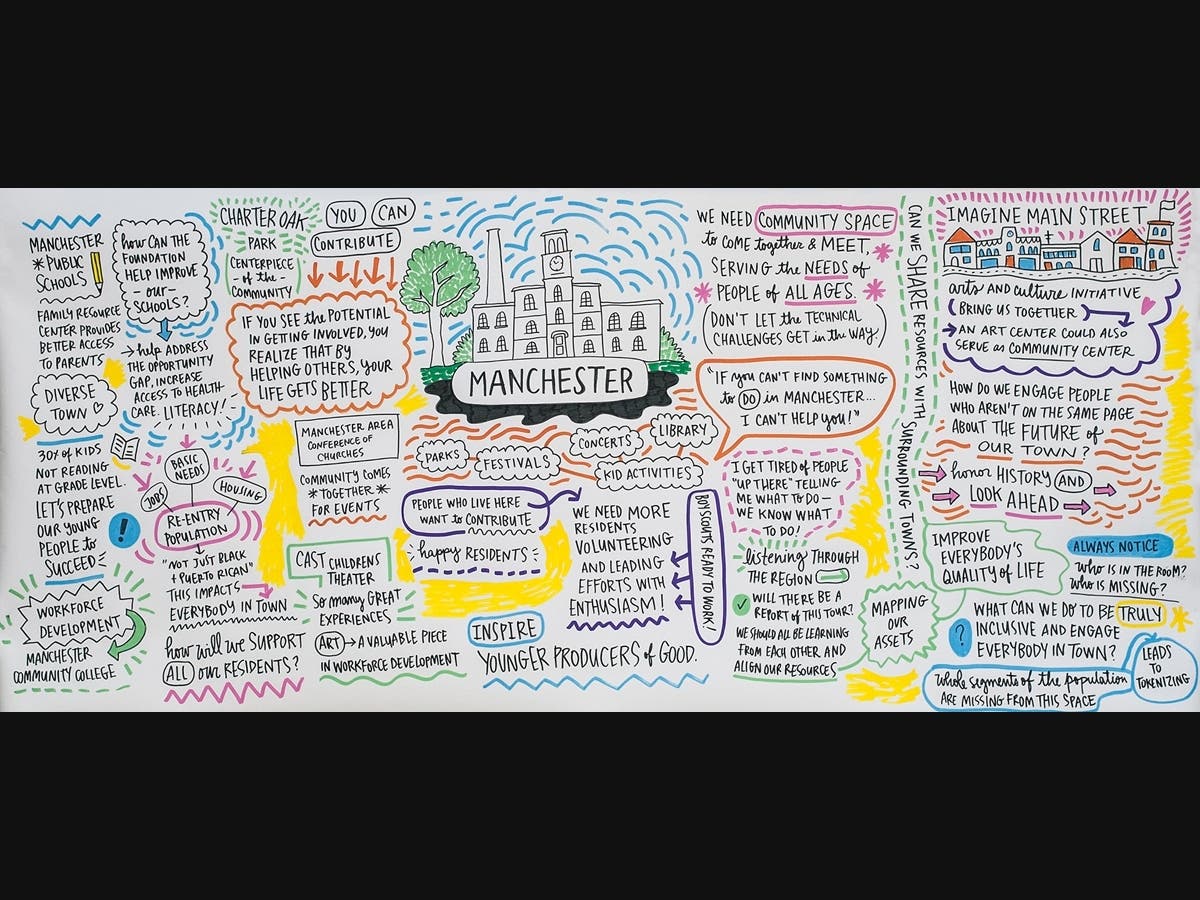 MANCHESTER
* PUBLIC
SCHOOLS
FAMILY RESOURCE
CENTER PROVIDES
BETTER ACCESS
TO PARENTS
DIVERSE
TOWN
30% OF KIDS
NOT READING
AT GRADE LEVEL.
LET'S PREPARE
OUR YOUNG
PEOPLE to
SUCCEED
!
WORKFORCE
DEVELOPMENT
MANCHESTER
COMMUNITY COLLEGE
how CAN THE
FOUNDATION
HELP IMPROVE
- our -
SCHOOLS?
→ help ADDRESS
THE OPPORTUNITY
GAP, INCREASE
ACCESS TO HEALTH-
CARE. LITERACY!
BASIC
NEEDS
JOBS
HOUSING
RE-ENTRY
POPULATION
"NOT JUST BLACK
+ PUERTO RICAN"
THIS IMPACTS
EVERYBODY IN TOWN
how will we SUPPORT
ALL our RESIDENTS?
CHARTER OAK
PARK
CENTERPIECE
- of the -
COMMUNITY
YOU CAN
CONTRIBUTE
IF YOU SEE the POTENTIAL
IN GETTING INVOLVED, YOU
REALIZE THAT BY
HELPING OTHERS, YOUR
LIFE GETS BETTER.
MANCHESTER AREA
CONFERENCE OF
CHURCHES
COMMUNITY COMES
* TOGETHER *
FOR EVENTS
CAST CHILDRENS
THEATER
So many GREAT
EXPERIENCES
ART → A VALUABLE PIECE
IN WORKFORCE DEVELOPMENT
MANCHESTER
PARKS
FESTIVALS
CONCERTS
LIBRARY
KID ACTIVITIES
PEOPLE WHO LIVE HERE
WANT to CONTRIBUTE
happy RESIDENTS
WE NEED MORE
RESIDENTS
VOLUNTEERING
AND LEADING
EFFORTS WITH
ENTHUSIASM!
BOYSCOUTS READY TO WORK!
INSPIRE
YOUNGER PRODUCERS of GOOD.
WE NEED COMMUNITY SPACE
to COME together & MEET,
SERVING the NEEDS of
PEOPLE of ALL AGES.
(DON'T LET the TECHNICAL
CHALLENGES GET in the WAY.)
"IF you CAN'T FIND SOMETHING
to DO in MANCHESTER...
I CAN'T HELP you!"
I GET TIRED of PEOPLE
"UP THERE" TELLING
ME WHAT TO DO -
WE KNOW WHAT
TO DO!
listening THROUGH
THE REGION
WILL THERE BE A
REPORT OF THIS TOUR?
WE SHOULD ALL BE LEARNING
FROM EACH OTHER AND
ALIGN OUR RESOURCES
MAPPING
OUR
ASSETS
CAN WE SHARE RESOURCES WITH SURROUNDING TOWNS?
IMAGINE MAIN STREET
arts AND culture INITIATIVE
BRING US TOGETHER
→ AN ART CENTER COULD ALSO
SERVE as COMMUNITY CENTER
HOW DO WE ENGAGE PEOPLE
WHO AREN'T ON THE SAME PAGE
ABOUT THE FUTURE of
OUR TOWN?
honor HISTORY AND
LOOK AHEAD
IMPROVE
EVERYBODY'S
QUALITY of LIFE
ALWAYS NOTICE
WHO IS IN THE ROOM?
Who IS MISSING?
?
WHAT CAN WE DO TO BE TRULY
INCLUSIVE AND ENGAGE
EVERYBODY IN TOWN?
Whole segments of the population
ARE MISSING FROM THIS SPACE
LEADS
TO
TOKENIZING